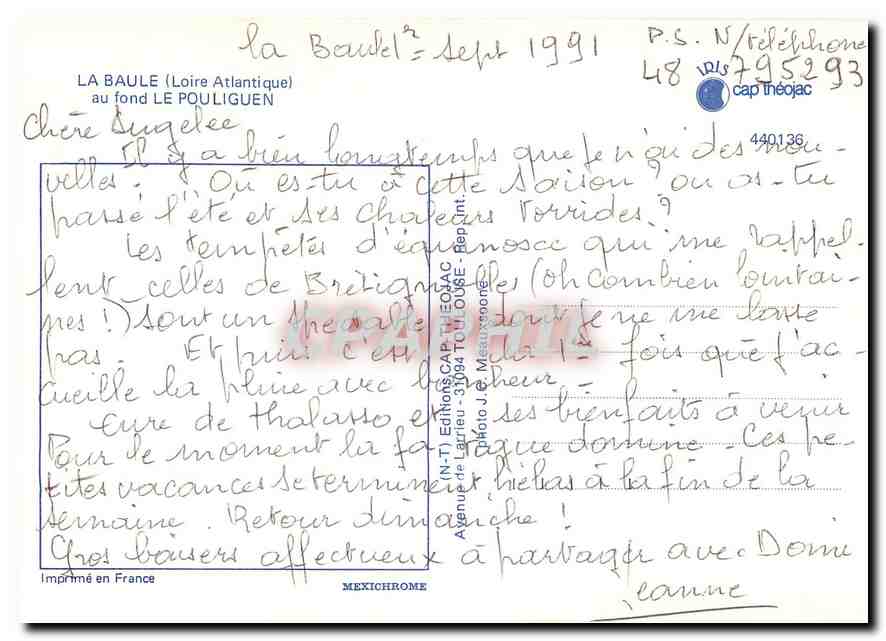 la Baule 12 = Sept 1991
P.S. N/téléphone
48 795293
IRIS
cap théojac
440136
LA BAULE (Loire Atlantique)
au fond LE POULIGUEN
Chère Angelee
Il y a bien longtemps que je n'ai des nou-
velles. Où es-tu à cette saison? ou as-tu
passé l'été et ses chaleurs torrides?
Les tempêtes d'équinoxe qui me rappel-
lent celles de Bretignolles (oh combien lointai-
nes!) sont un spectacle dont je ne me lasse
pas. Et puis c'est la 1= fois que j'ac-
cueille la pluie avec bonheur -
Cure de thalasso et ses bienfaits à venir
Pour le moment la fatigue domine - Ces pe-
tites vacances se terminent hélas à la fin de la
semaine. Retour dimanche!
Gros baisers affectueux à partager avec Domi
Jeanne
(N-T) Editions CAP-THEOJAC
Avenue de Larrieu - 31094 TOULOUSE - Rep. int.
photo J.C. Meauxsoone
CPAPHIL
Imprimé en France
MEXICHROME